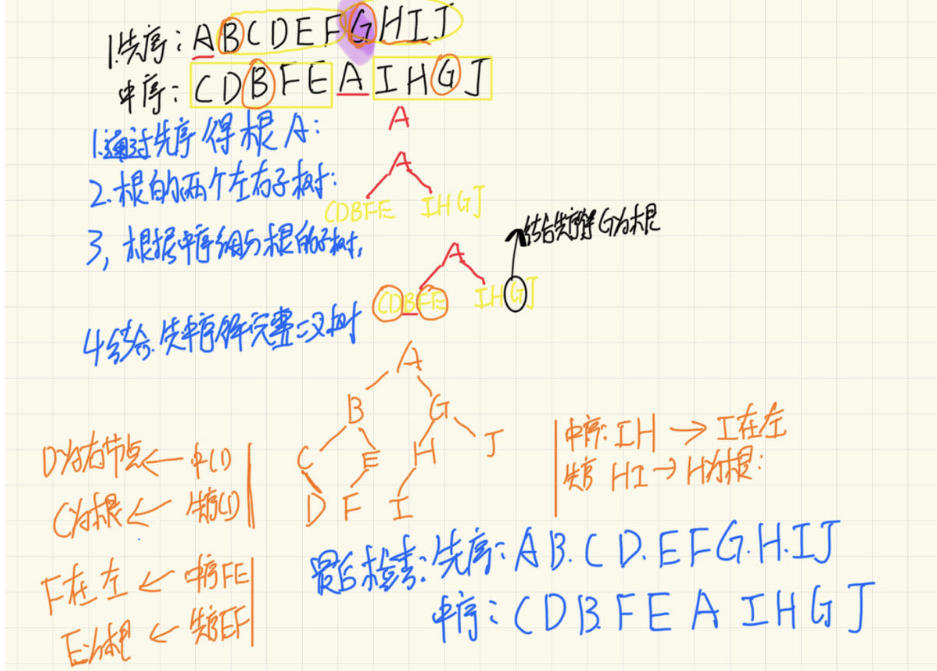 1.先序:ABCDEFGHIJ
中序:CDBFEAIHGJ
1.通过先序得根A:
A
2.根的两个左右子树:
A
CDBFE IHGJ
3,根据中序细分根的子树,
结合先序得G为根
A
CDBFE IHGJ
4结合.先中序得完整二叉树
A
B G
C E H J
D F I
D为右节点←中CD
C为根←先序CD
F在左←中序FE
E为根←先序EF
中序:IH→I在左
先序HI→H为根:
最后检查:先序:AB.CD.EFG.H.IJ
中序:CDBFEAIHGJ